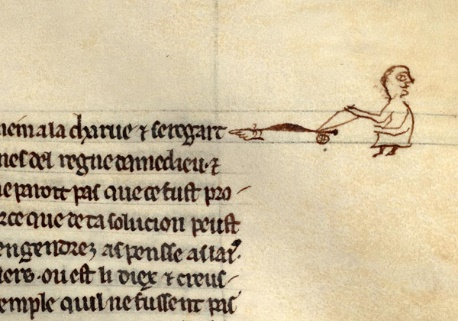 a la charue ⁊ se regart
nes del regne damedieu · ⁊
ne paroit pas que ce fust pro-
rce que de ta solucion peust
engendrez as pensse
iers · ou est li diex ⁊ creus-
emple quil ne fussent pas